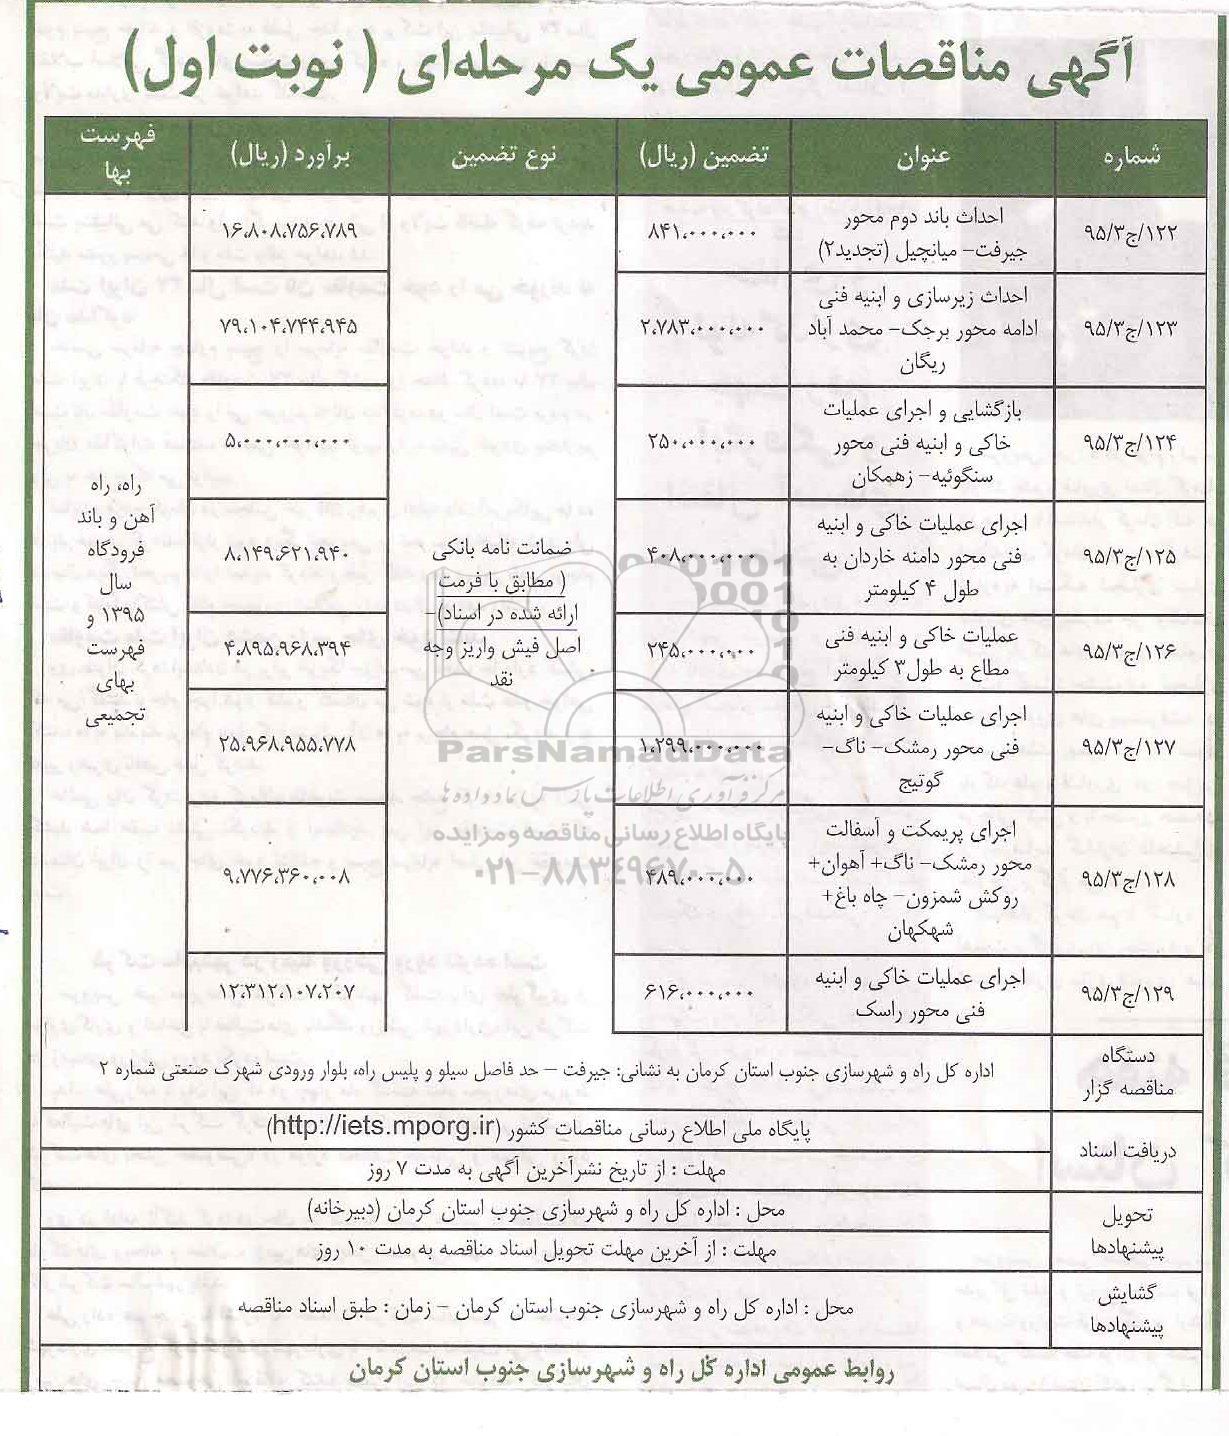 آگهی مناقصات عمومی یک مرحله‌ای ( نوبت اول)
شماره
عنوان
تضمین (ریال)
نوع تضمین
برآورد (ریال)
فهرست
بها
۹۵/۳ج/۱۲۲
احداث باند دوم محور
جیرفت- میانچیل (تجدید۲)
۸۴۱،۰۰۰،۰۰۰
۱۶،۸۰۸،۷۵۶،۷۸۹
۹۵/۳ج/۱۲۳
احداث زیرسازی و ابنیه فنی
ادامه محور برجک- محمد آباد
ریگان
۲،۷۸۳،۰۰۰،۰۰۰
۷۹،۱۰۴،۷۴۴،۹۴۵
۹۵/۳ج/۱۲۴
بازگشایی و اجرای عملیات
خاکی و ابنیه فنی محور
سنگوئیه- زهمکان
۲۵۰،۰۰۰،۰۰۰
۵،۰۰۰،۰۰۰،۰۰۰
۹۵/۳ج/۱۲۵
اجرای عملیات خاکی و ابنیه
فنی محور دامنه خاردان به
طول ۴ کیلومتر
۴۰۸،۰۰۰،۰۰۰
۸،۱۴۹،۶۲۱،۹۴۰
۹۵/۳ج/۱۲۶
عملیات خاکی و ابنیه فنی
مطاع به طول۳ کیلومتر
۲۴۵،۰۰۰،۰۰۰
۴،۸۹۵،۹۶۸،۳۹۴
۹۵/۳ج/۱۲۷
اجرای عملیات خاکی و ابنیه
فنی محور رمشک- ناگ-
گوتیج
۱،۲۹۹،۰۰۰،۰۰۰
۲۵،۹۶۸،۹۵۵،۷۷۸
۹۵/۳ج/۱۲۸
اجرای پریمکت و آسفالت
محور رمشک- ناگ+ آهوان+
روکش شمزون- چاه باغ+
شهکهان
۴۸۹،۰۰۰،۰۰۰
۹،۷۷۶،۳۶۰،۰۰۸
۹۵/۳ج/۱۲۹
اجرای عملیات خاکی و ابنیه
فنی محور راسک
۶۱۶،۰۰۰،۰۰۰
۱۲،۳۱۲،۱۰۷،۲۰۷
ضمانت نامه بانکی
( مطابق با فرمت
ارائه شده در اسناد)-
اصل فیش واریز وجه
نقد
راه، راه
آهن و باند
فرودگاه
سال
۱۳۹۵ و
فهرست
بهای
تجمیعی
ParsNamadData
مرکز فرآوری اطلاعات پارس نماد داده ها
پایگاه اطلاع رسانی مناقصه و مزایده
۰۲۱-۸۸۳۴۹۶۷۰-۵
دستگاه
مناقصه گزار
اداره کل راه و شهرسازی جنوب استان کرمان به نشانی: جیرفت – حد فاصل سیلو و پلیس راه، بلوار ورودی شهرک صنعتی شماره ۲
دریافت اسناد
پایگاه ملی اطلاع رسانی مناقصات کشور (http://iets.mporg.ir)
مهلت : از تاریخ نشرآخرین آگهی به مدت ۷ روز
تحویل
پیشنهادها
محل : اداره کل راه و شهرسازی جنوب استان کرمان (دبیرخانه)
مهلت : از آخرین مهلت تحویل اسناد مناقصه به مدت ۱۰ روز
گشایش
پیشنهادها
محل : اداره کل راه و شهرسازی جنوب استان کرمان – زمان : طبق اسناد مناقصه
روابط عمومی اداره کل راه و شهرسازی جنوب استان کرمان